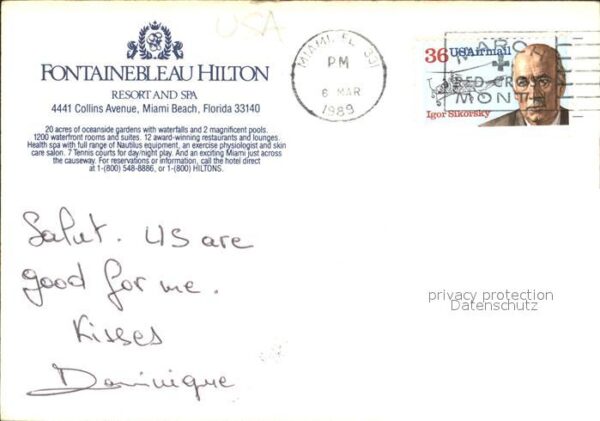 USA
FONTAINEBLEAU HILTON
RESORT AND SPA
4441 Collins Avenue, Miami Beach, Florida 33140
20 acres of oceanside gardens with waterfalls and 2 magnificent pools.
1200 waterfront rooms and suites. 12 award-winning restaurants and lounges.
Health spa with full range of Nautilus equipment, an exercise physiologist and skin
care salon. 7 Tennis courts for day/night play. And an exciting Miami just across
the causeway. For reservations or information, call the hotel direct
at 1-(800) 548-8886, or 1-(800) HILTONS.
MIAMI, FL 331
PM
6 MAR
1989
36 USAirmail
Igor Sikorsky
RED CROSS
MONTH
Salut. US are
good for me.
Kisses
Dominique
privacy protection
Datenschutz